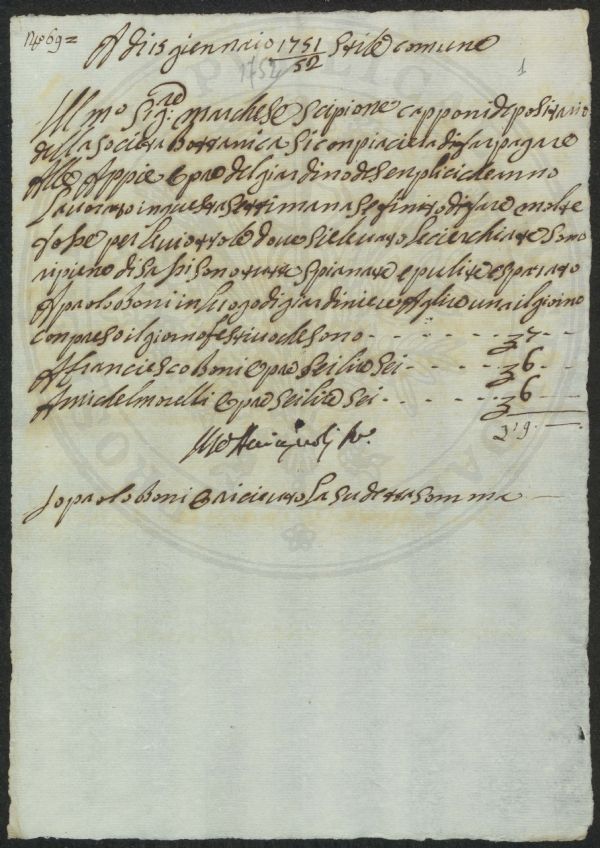 1486 g =
A di 15 giennaio 1751/52 stile comune
1752
1
Ill mo Sig:re marchese scipione capponi depositario
della società Bottanica si conpiacierà di far pagare
alle Appie Opre del giardino de senplici che anno
lavorato in questa settimana se finito di fare molte
fosse per li viottole dove si levato le cierchiate sono
ripiene di sassi sono tutte spianate e pulite e portato
A paolo Boni in luogo di giardiniere A lire una il giorno
conpreso il giorno festivo che sono - - - - - - - £ 7 - -
A franciesco Boni Opre sei lire sei - - - - - - £ 6 - -
A michel morelli Opre sei lire sei - - - - - - £ 6 - -
£ 19 - -
Io paolo Boni O ricieuto la sudetta somma